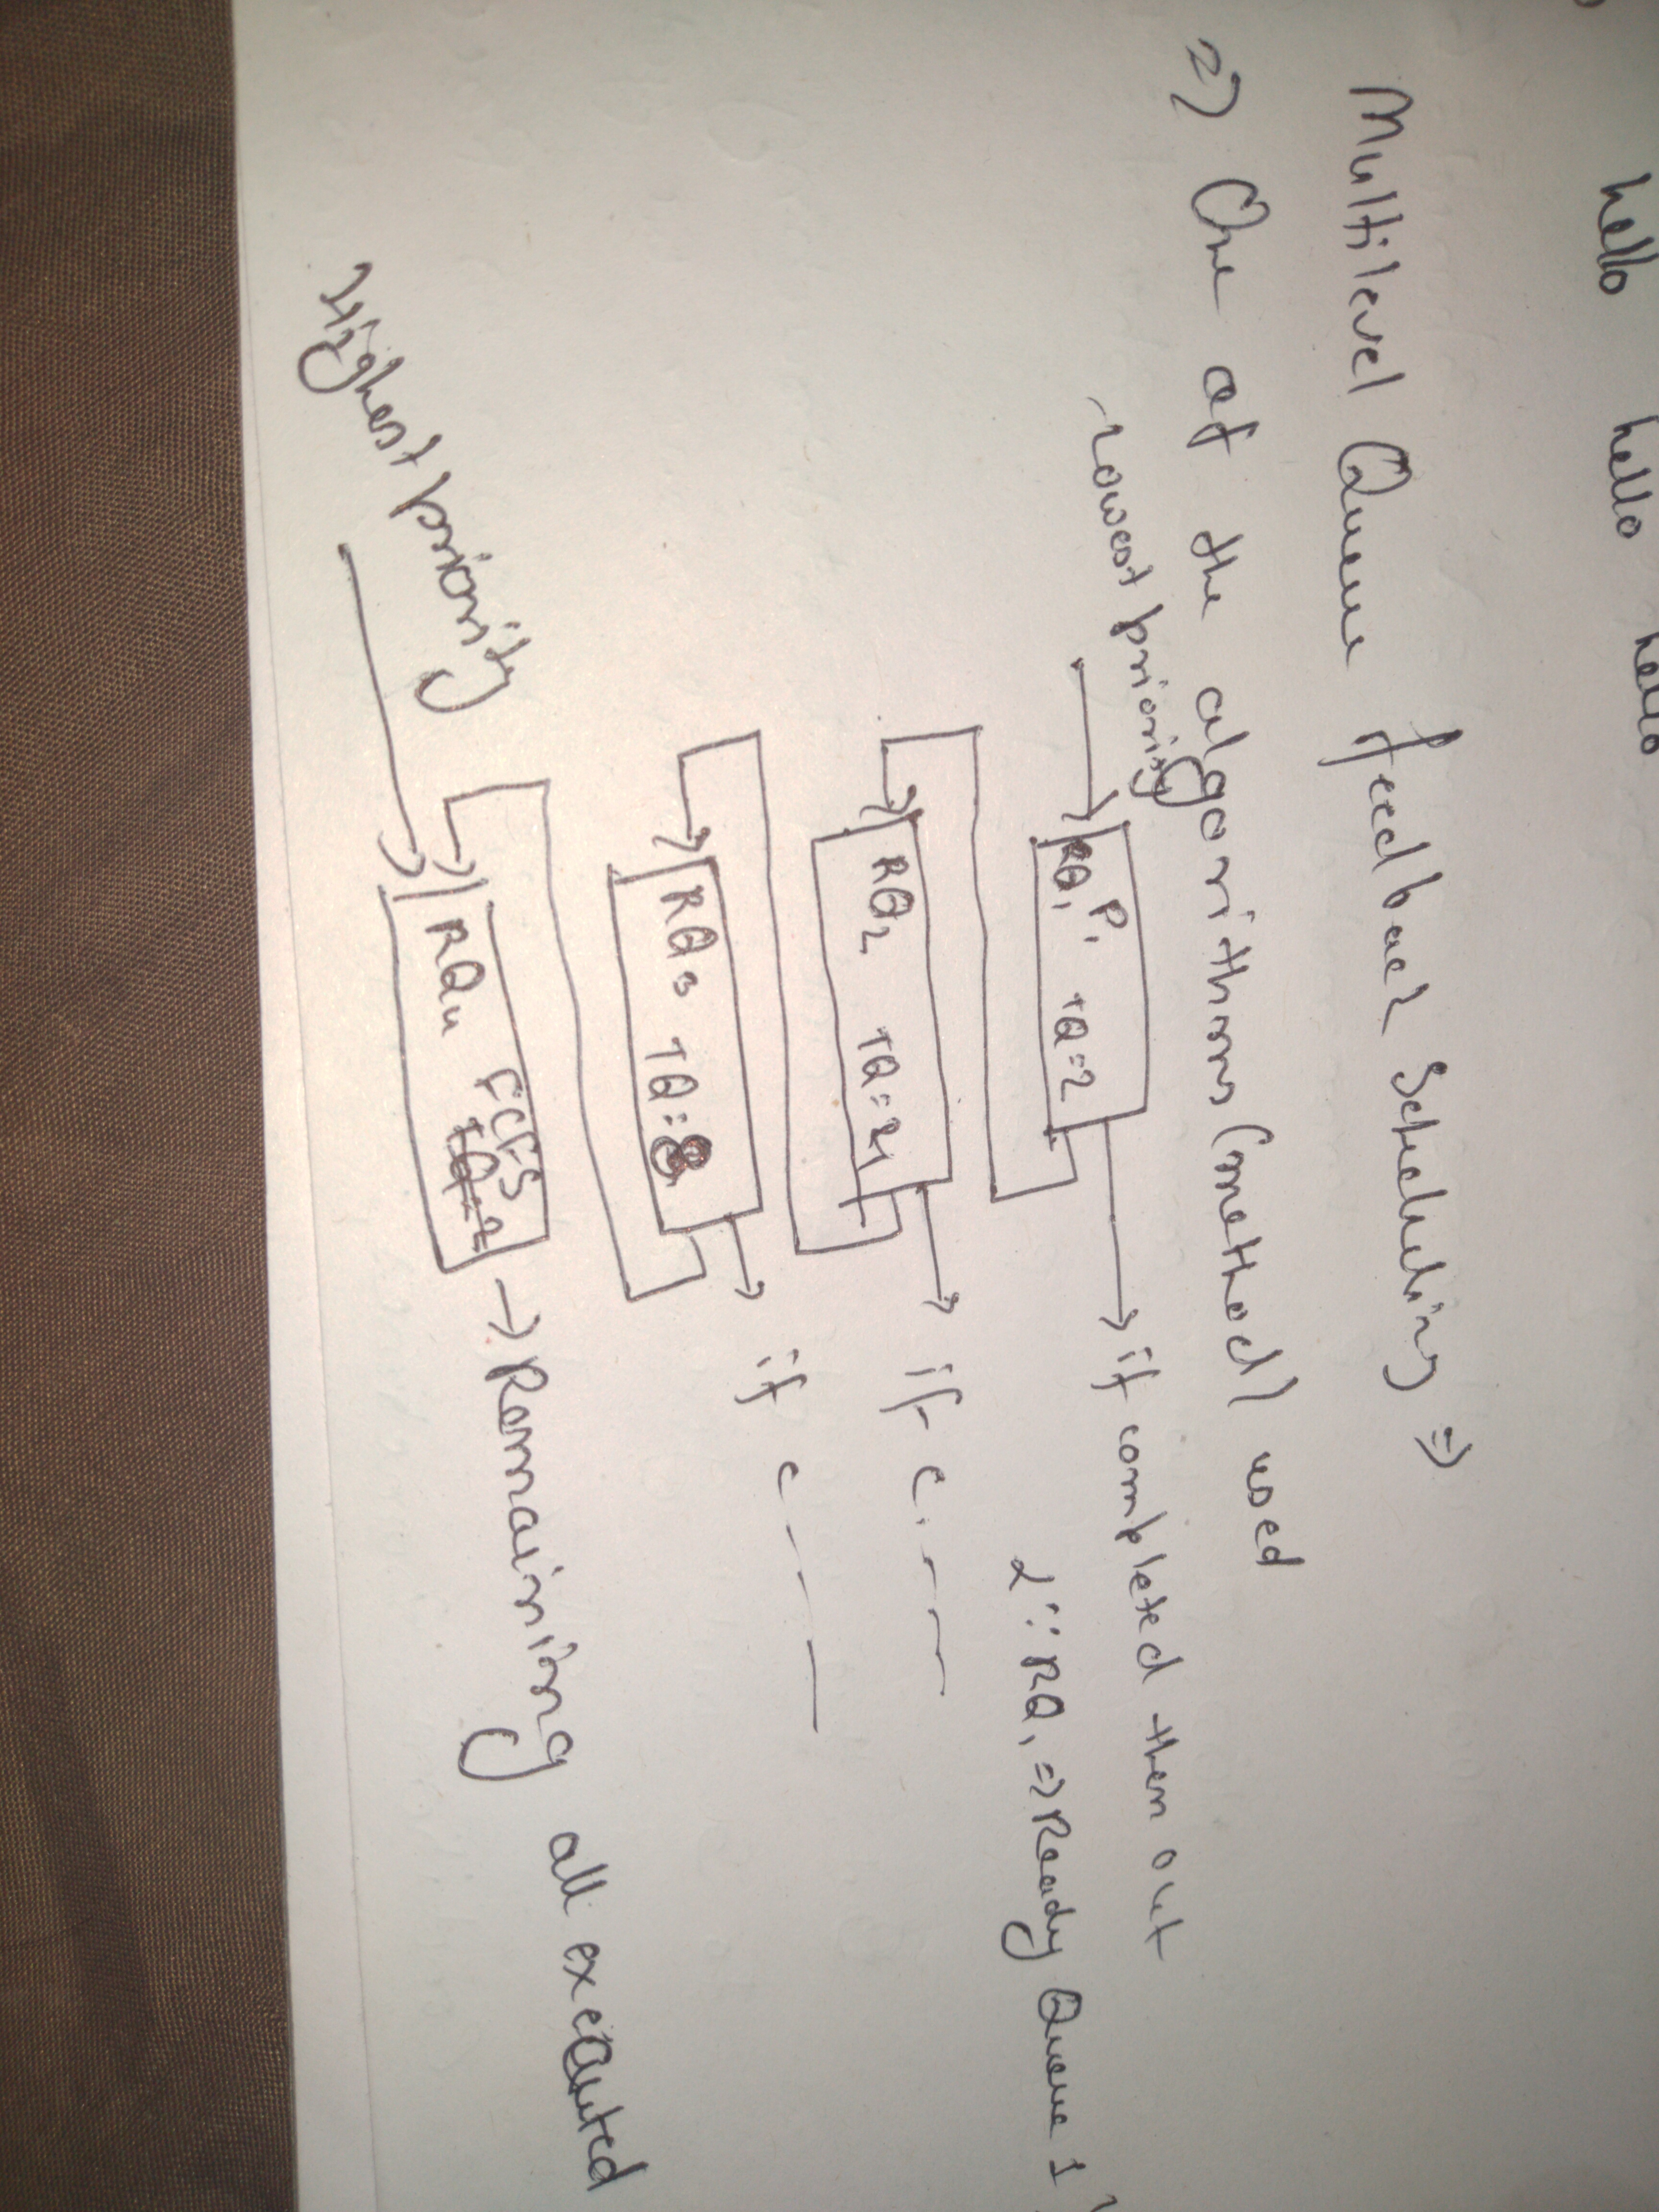 hello hello hello
Multilevel Queue feedback Scheduling ⇒
⇒ One of the algorithms (method) used
Lowest priority
RQ1 P1 TQ=2 → if completed then out
∵ RQ1 ⇒ Ready Queue 1
RQ2 TQ=4 → if c.
RQ3 TQ=8 → if c
Highest priority
RQ4 FCFS → Remaining all executed